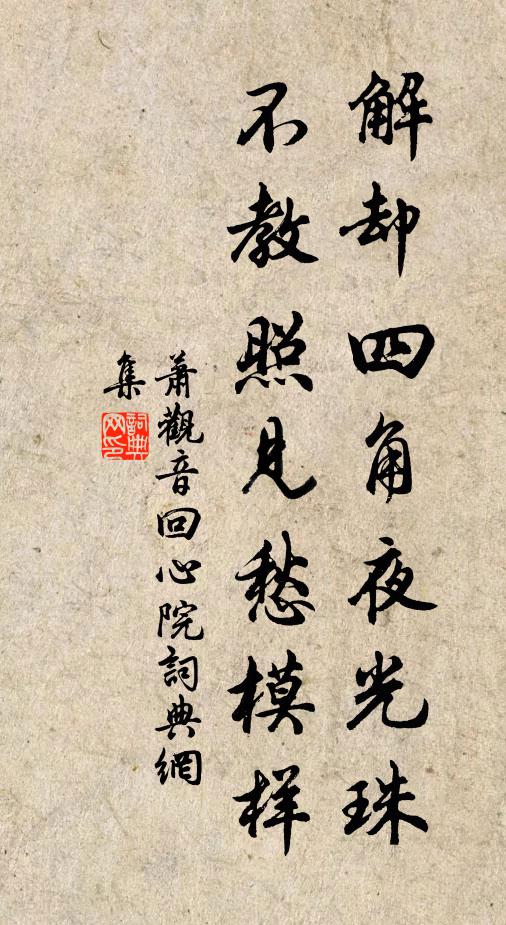 解却四角夜光珠
不教照見愁模樣
蕭觀音回心院詞典網
集
詞典網印